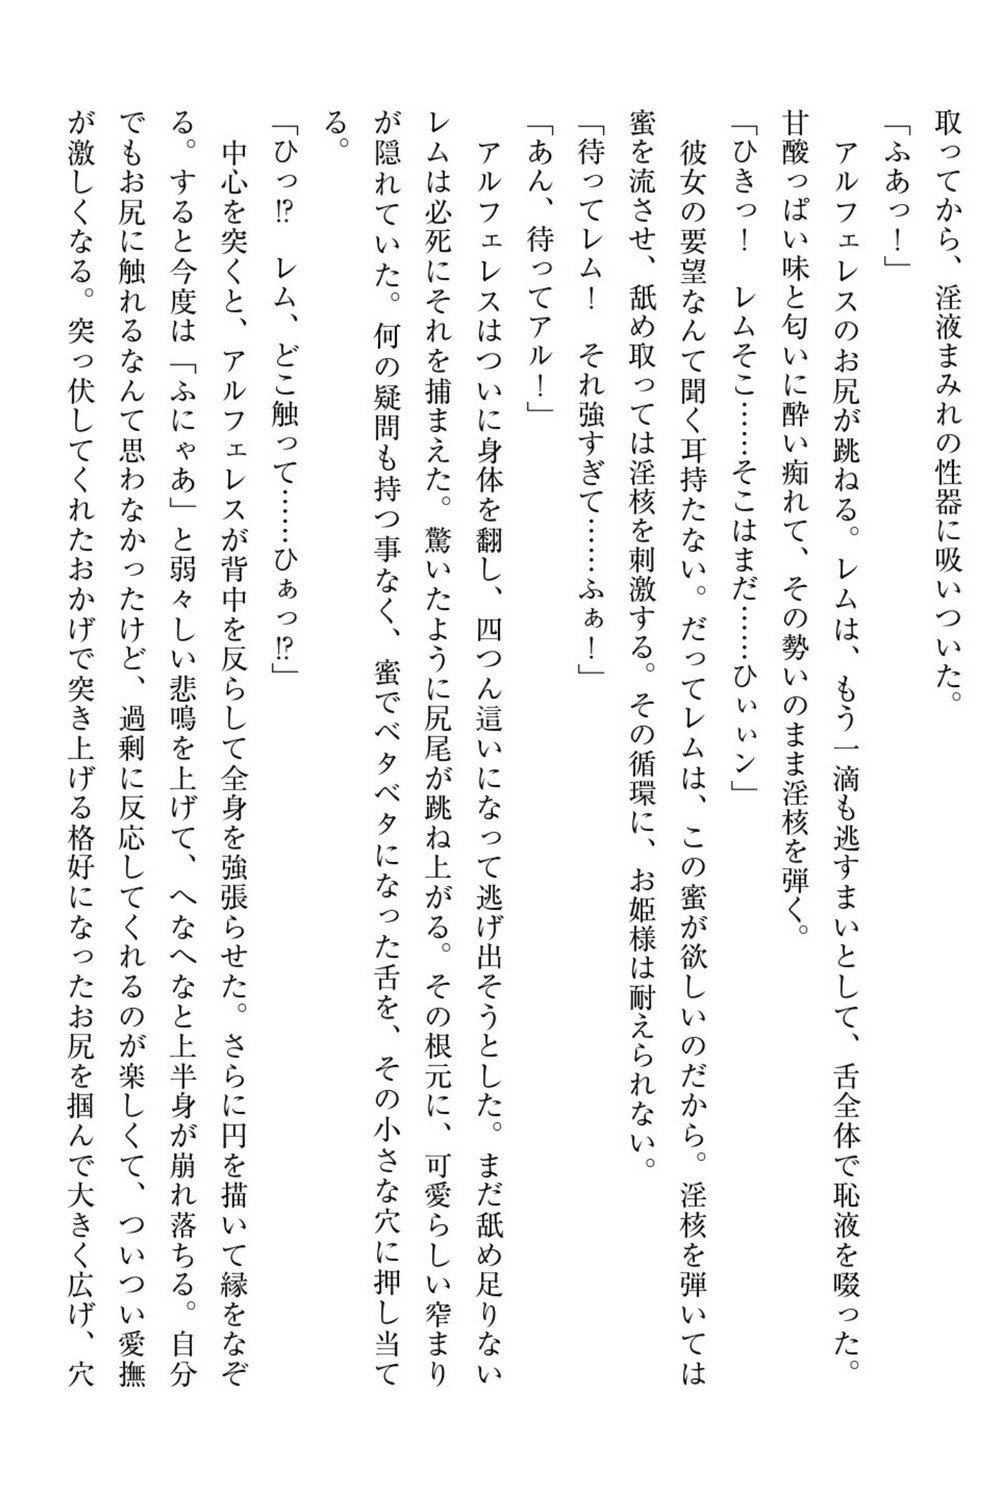 取ってから、淫液まみれの性器に吸いついた。
「ふあっ！」
アルフェレスのお尻が跳ねる。レムは、もう一滴も逃すまいとして、舌全体で恥液を啜った。
甘酸っぱい味と匂いに酔い痴れて、その勢いのまま淫核を弾く。
「ひきっ！　レムそこ……そこはまだ……ひぃぃン」
彼女の要望なんて聞く耳持たない。だってレムは、この蜜が欲しいのだから。淫核を弾いては
蜜を流させ、舐め取っては淫核を刺激する。その循環に、お姫様は耐えられない。
「待ってレム！　それ強すぎて……ふぁ！」
「あん、待ってアル！」
アルフェレスはついに身体を翻し、四つん這いになって逃げ出そうとした。まだ舐め足りない
レムは必死にそれを捕まえた。驚いたように尻尾が跳ね上がる。その根元に、可愛らしい窄まり
が隠れていた。何の疑問も持つ事なく、蜜でベタベタになった舌を、その小さな穴に押し当て
る。
「ひっ⁉　レム、どこ触って……ひぁっ⁉」
中心を突くと、アルフェレスが背中を反らして全身を強張らせた。さらに円を描いて縁をなぞ
る。すると今度は「ふにゃあ」と弱々しい悲鳴を上げて、へなへなと上半身が崩れ落ちる。自分
でもお尻に触れるなんて思わなかったけど、過剰に反応してくれるのが楽しくて、ついつい愛撫
が激しくなる。突っ伏してくれたおかげで突き上げる格好になったお尻を掴んで大きく広げ、穴